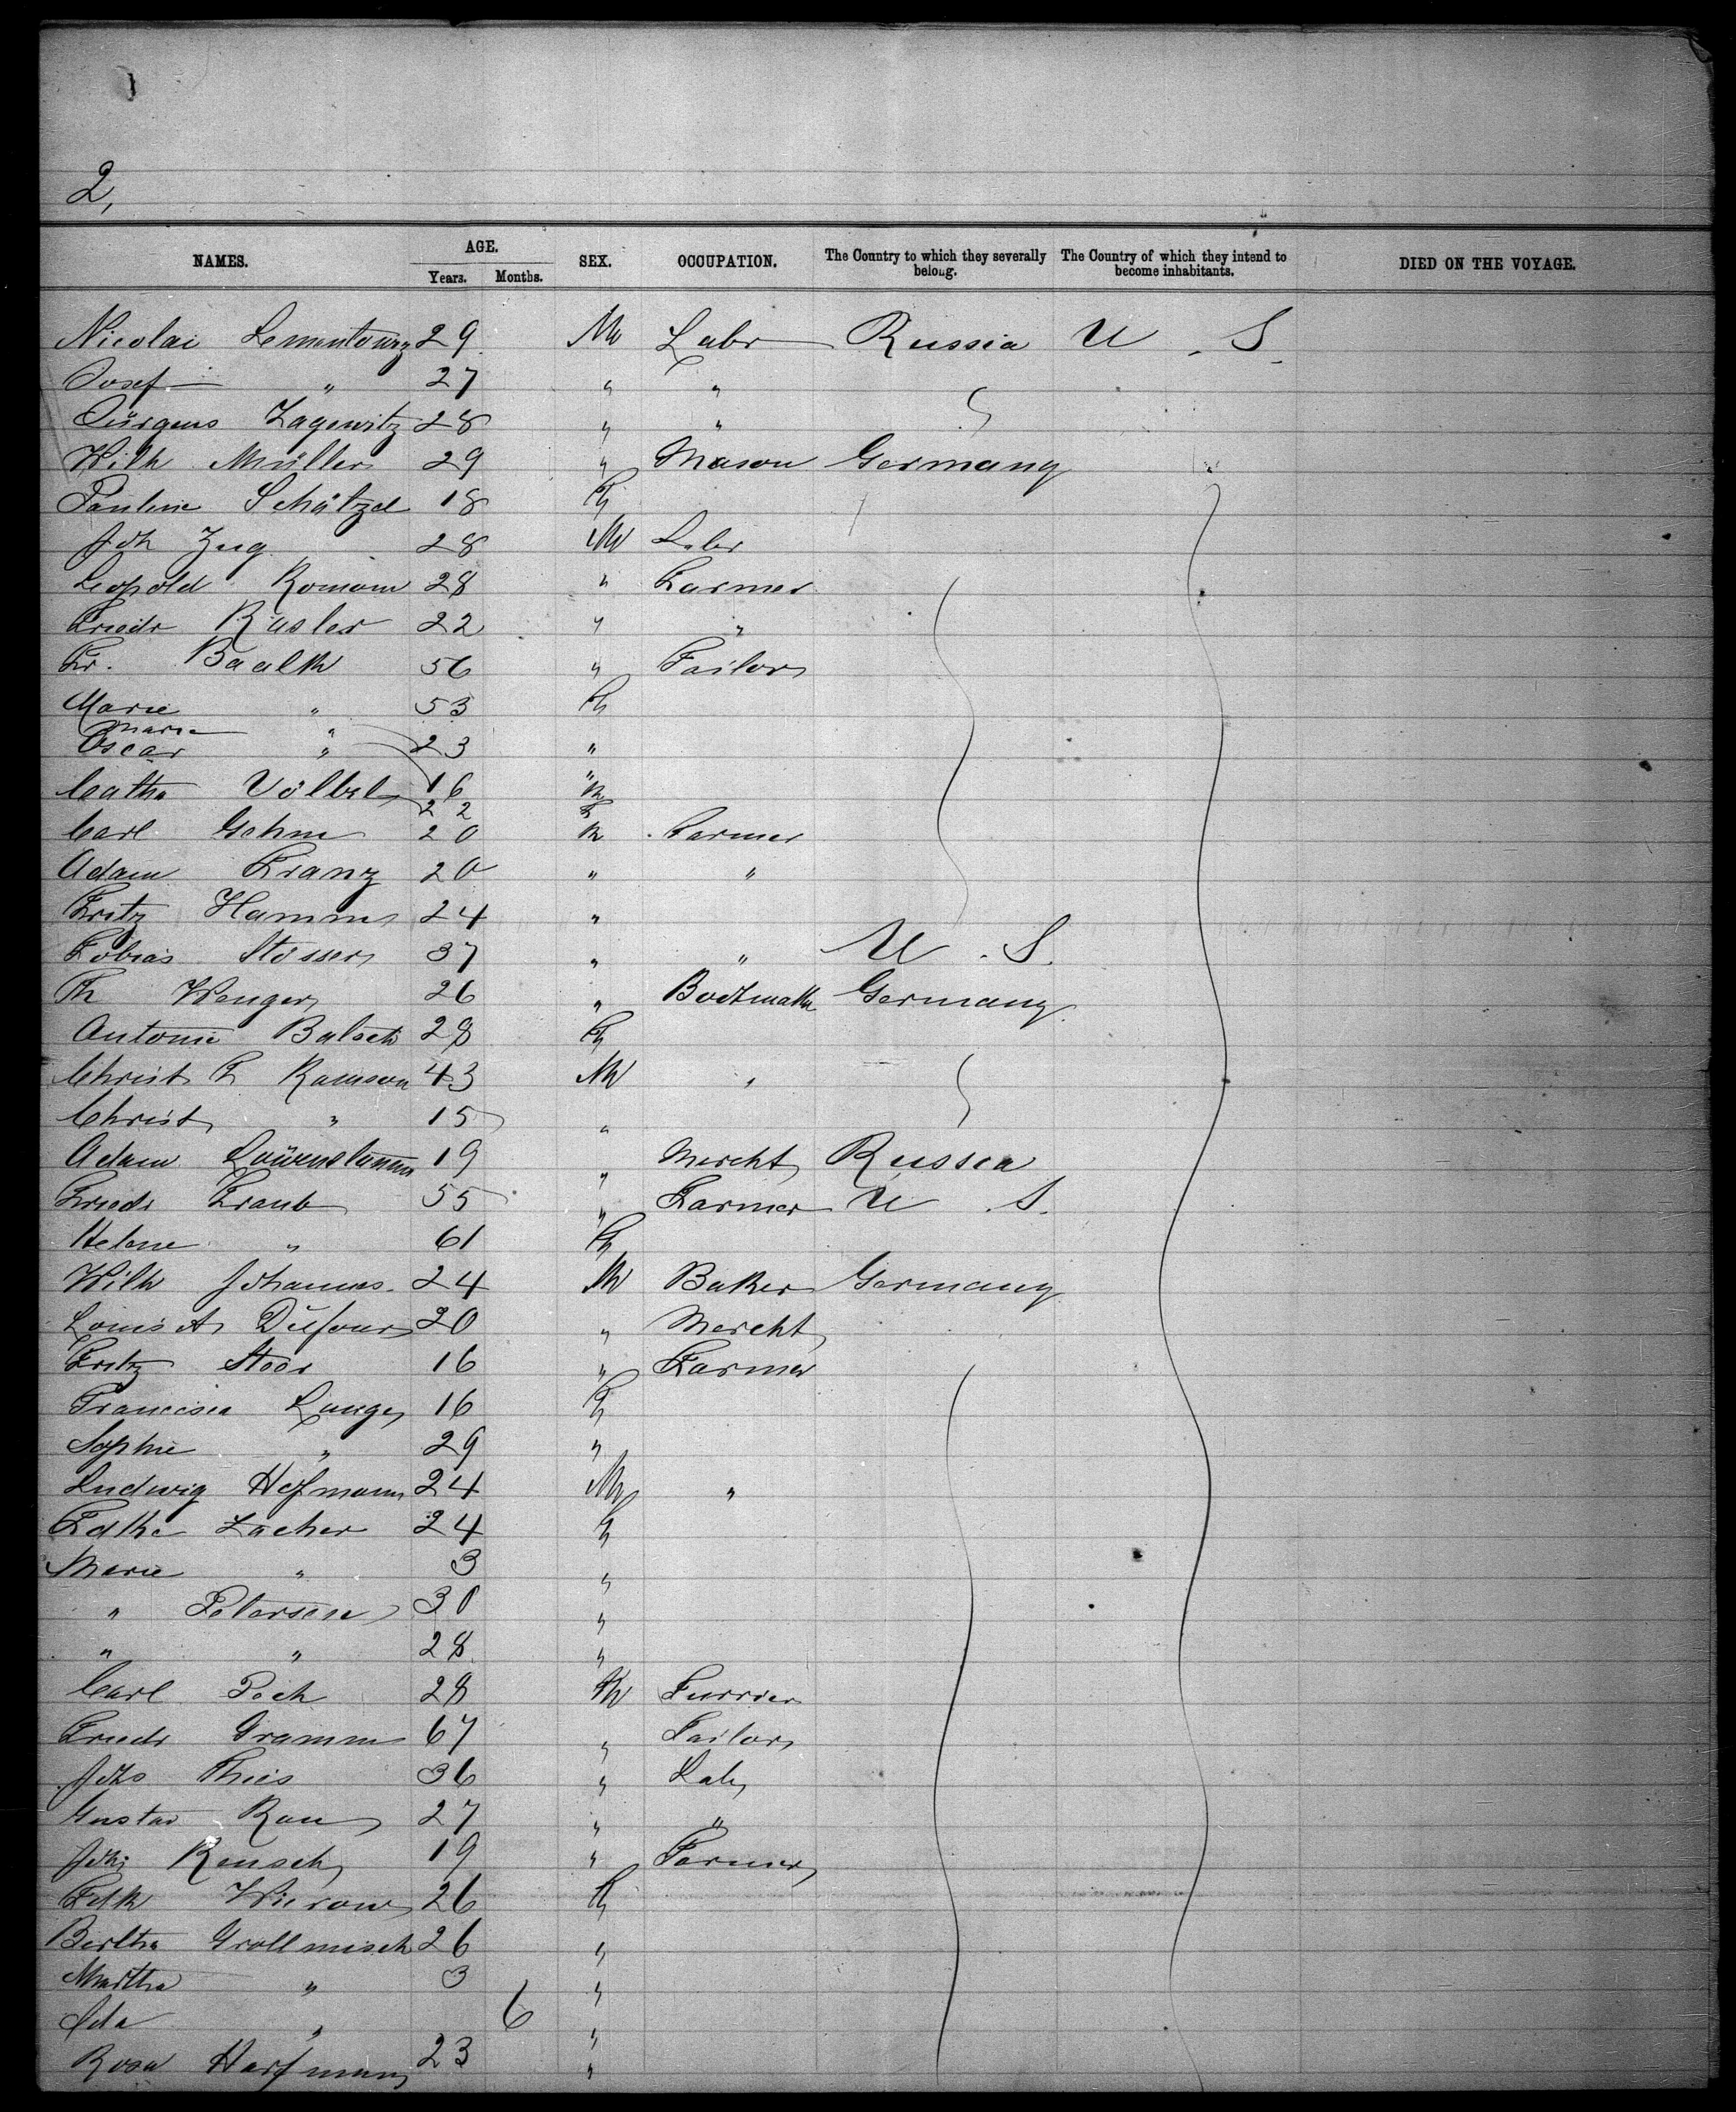 2,
NAMES. AGE. SEX. OCCUPATION. The Country to which they severally belong. The Country of which they intend to become inhabitants. DIED ON THE VOYAGE.
Years. Months.
Nicolai 29 M Labr Russia U. S.
Josef " 27 " "
Jürgens Zagewitz 28 " "
Wilh Müller 29 " Mason Germany
Pauline Schätzel 18 F
Joh Zug 28 M Labr
Leopold Romann 28 " Farmer
Friedr Räsler 22 " "
Fr. Baalk 56 " Tailor
Marie " 53 F
Marie "
Oscar " 23 "
Catha Völbel 16 " M
22 F
Carl Gehm 20 M Farmer
Adam Franz 20 " "
Fritz Hamm 24 "
Tobias Stösser 37 " " U. S.
Th Wenger 26 " Germany
Antonie Balsch 28 F
Christ F Ramson 43 M "
Christ " 15 "
Adam 19 " Mercht Russia
Friedr Traub 55 " Farmer U S.
Helene " 61 F
Wilh Johannes 24 M Baker Germany
Louis A Düfour 20 " Mercht
Fritz Stoor 16 " Farmer
Francisca Lange 16 F
Sophie " 29 "
Ludwig Hofmann 24 M "
Zacher 24 F
Marie " 3 "
" Petersen 30 "
" " 28 "
Carl Poch 28 M Furrier
Friedr Gramm 67 " Tailor
Johs Theis 36 " Lab
Gustav Rau 27 " "
Johs Rensch 19 " Farmer
Wierow 26 F
Bertha Grollmisch 26 "
Martha " 3 "
Ida " 6 "
Rosa Harfmann 23 "